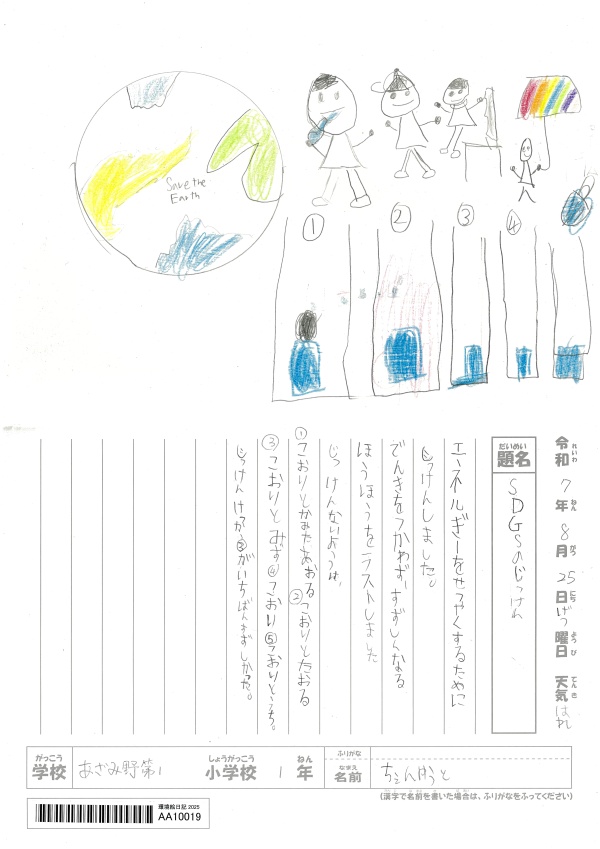 Save the
Earth
①
②
③
④
令和 7年 8月 25日 げつ曜日 天気 はれ
れいわ ねん がつ にち ようび てんき
だいめい
題名 SDGSのじっけん
エネルぎーをせつやくするために
じっけんしました。
でんきをつかわず、すずしくなる
ほうほうをテストしました
じっけんないようは、
①こおりとかみであおる ②こおりとたおる
③こおりとみず④こおり⑤こおりとうちわ。
じっけんけっか③がいちばんすずしかった。
がっこう しょうがっこう ねん ふりがな
学校 あざみ野第1 小学校 1年
なまえ
名前 ちぇんけうと
(漢字で名前を書いた場合は、ふりがなをふってください)
環境絵日記 2025
AA10019